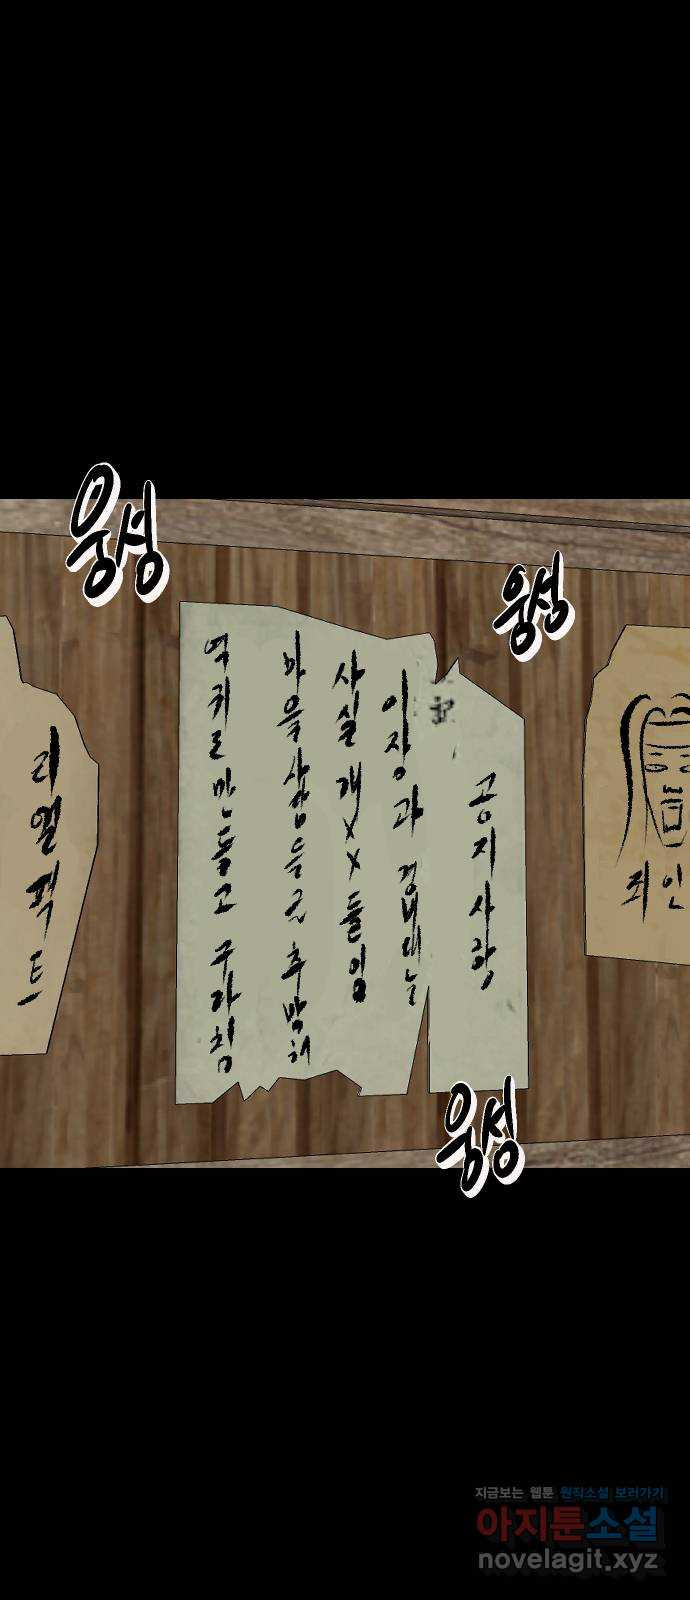 웅성
웅성
공지사항
이장과 경비대는
사실 개XX들임
마을사람들을 추방해
역귀로 만들고 구라침
리얼팩트
죄인
웅성
지금보는 웹툰 원작소설 보러가기
아지툰소설
novelagit.xyz